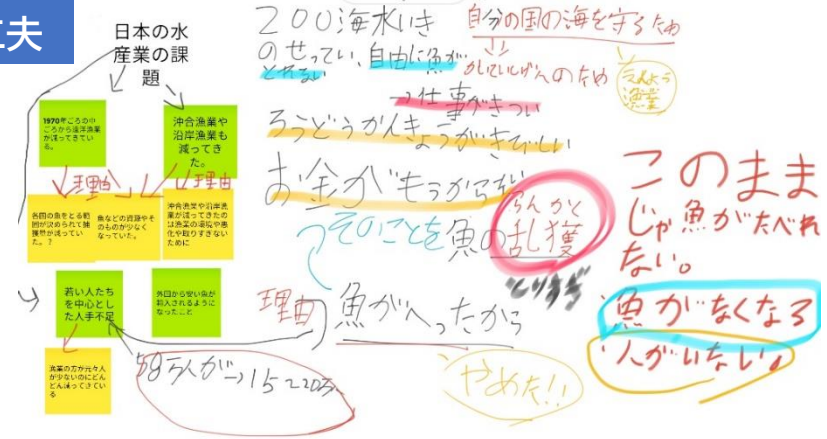 工夫
日本の水
産業の課
題
1970年ごろの中
ごろから遠洋漁業
が減ってきてい
る。
沖合漁業や
沿岸漁業も
減ってき
た。
理由
理由
各国の魚をとる範
囲が決められて捕
獲量が減ってい
た。?
魚などの資源やそ
のものが少なく
なっていた。
沖合漁業や沿岸漁
業が減ってきたの
は漁業の環境や悪
化や取りすぎない
ために
若い人たち
を中心とし
た人手不足
外国から安い魚が
輸入されるように
なったこと
漁業の方が元々人
が少ないのにどん
どん減ってきてい
る
200海水いき
のせってい、自由に魚が
とれない
自分の国の海を守るため
えんよう
漁業
→仕事がきつい
ろうどうかんきょうがきびしい
お金がもうからない
らんかく
そのことを魚の乱獲
とりすぎ
理由
魚がへったから
やめた!!
このまま
じゃ魚がたべれ
ない。
・魚がなくなる
・人がいない。